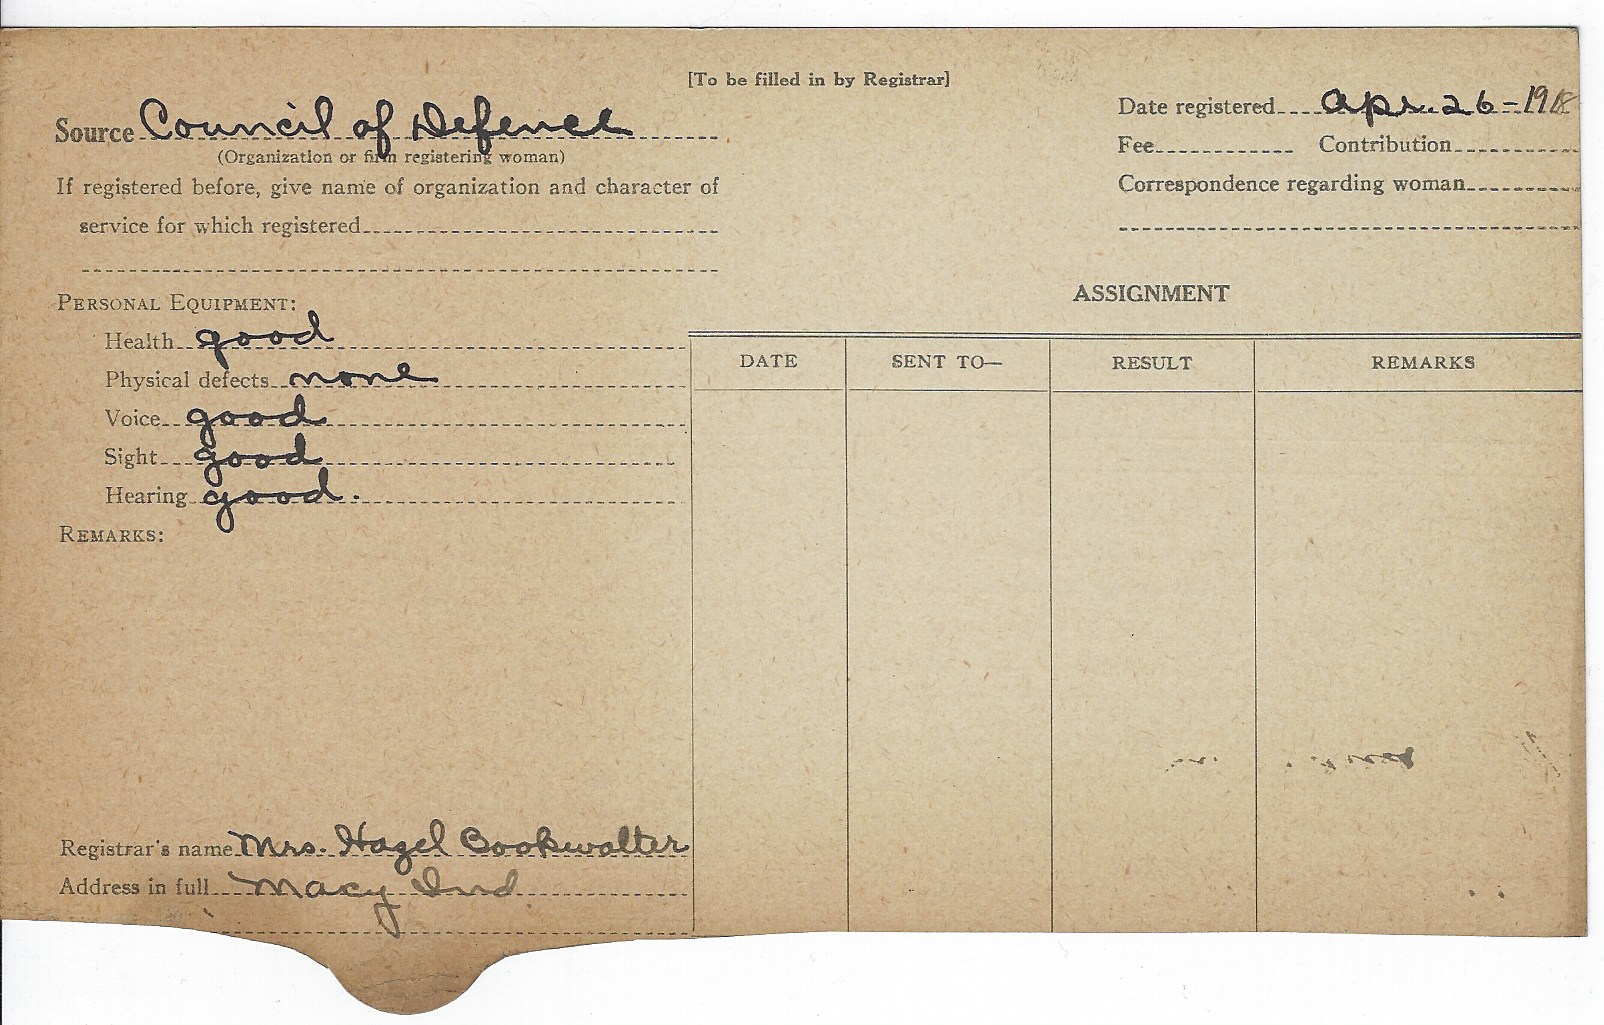 [To be filled in by Registrar]
Source Council of Defence
(Organization or firm registering woman)
If registered before, give name of organization and character of
service for which registered
PERSONAL EQUIPMENT:
Health good
Physical defects none
Voice good
Sight good
Hearing good.
REMARKS:
Registrar's name Mrs. Hazel Bookwalter
Address in full Macy Ind
Date registered Apr. 26-1918
Fee Contribution
Correspondence regarding woman
ASSIGNMENT
DATE SENT TO— RESULT REMARKS